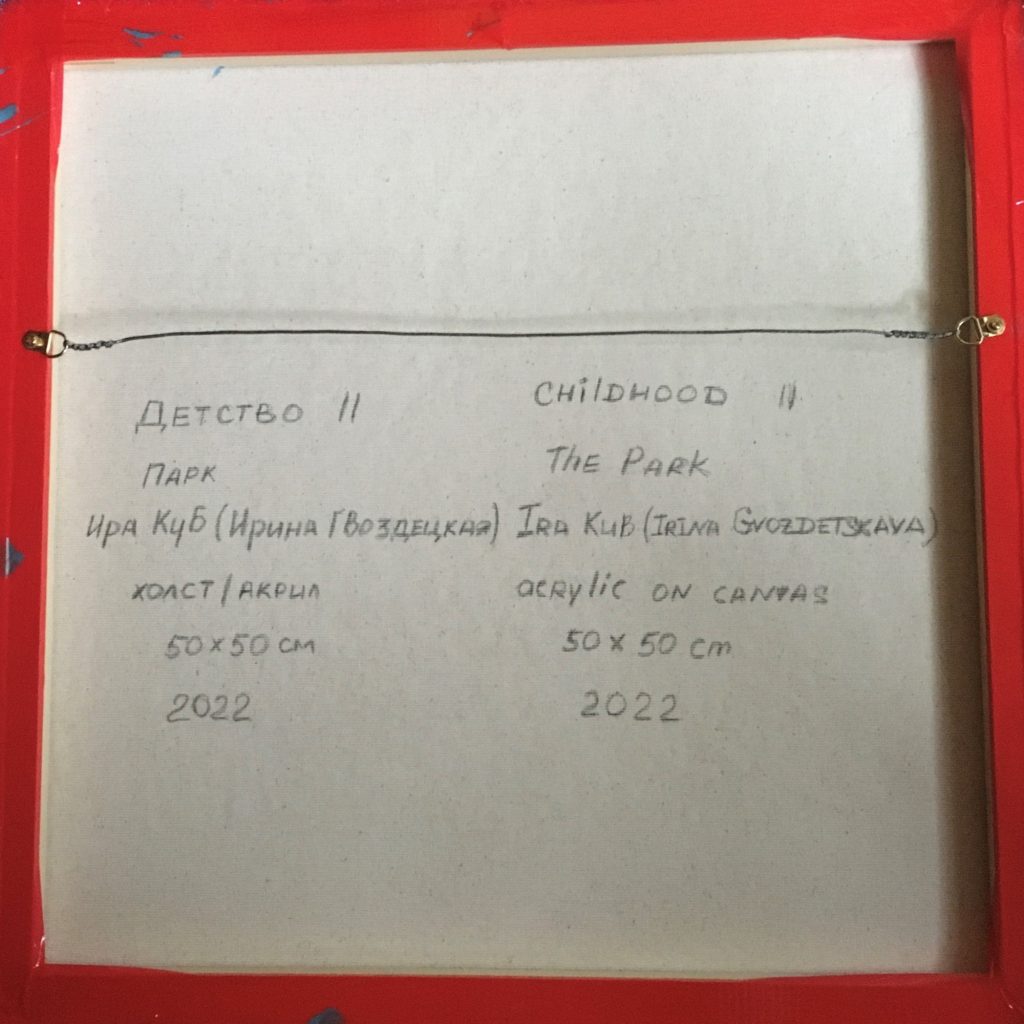 Детство II
Парк
Ира Куб (Ирина Гвоздецкая)
холст/акрил
50x50 см
2022
CHilDHOOD II
The Park
Ira Kub (Irina Gvozdetskaya)
acrylic on canvas
50 x 50 cm
2022